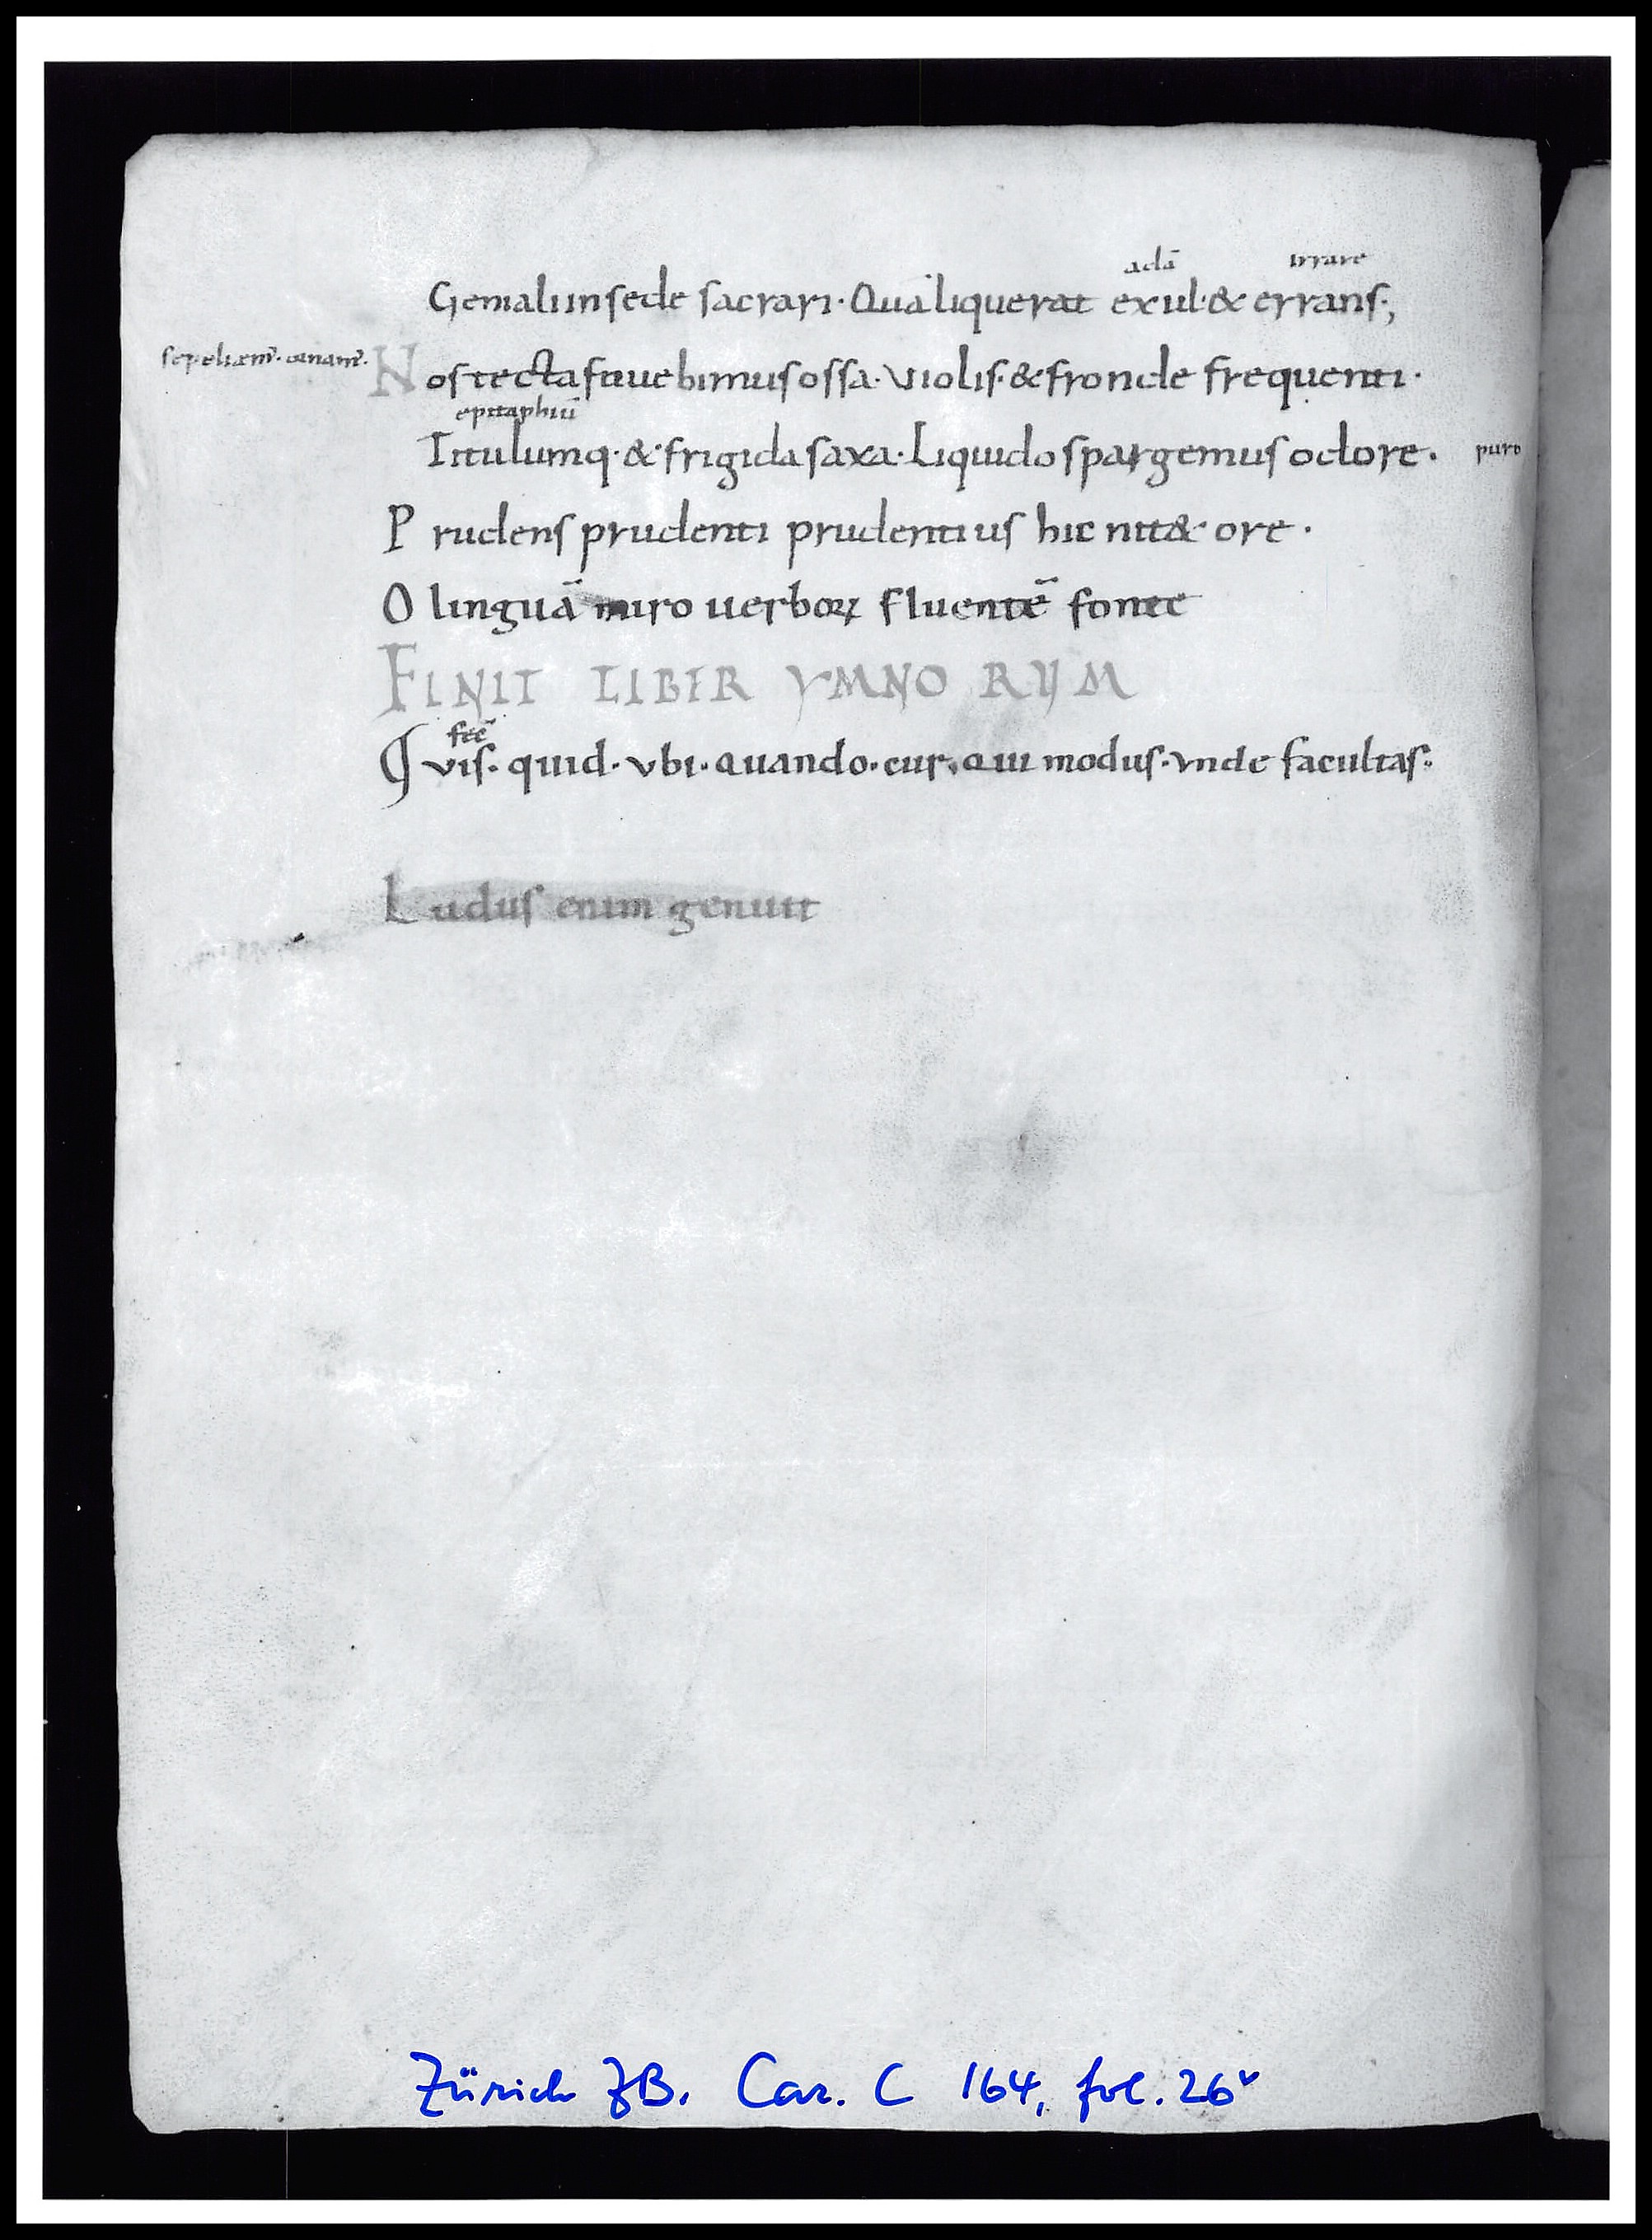 adā irrare
Genialiin sede sacrari. Quā liquerat exul. & errans.;
sepeliem?. canam?.
Nos tecta fouebimus ossa. Violis. & fronde frequenti.
epitaphiū
Titulumq. & frigida saxa. Liquido spargemus odore. puro
Prudens prudenti prudentius hic nit& ore.
O linguā miro uerboꝝ fluentē fonte
FINIT LIBER YMNORUM
fec̄
Quis. quid. ubi. quando. cur. qui modus. unde facultas:
Ludus enim genuit
Zürich ZB. Car. C 164, fol. 26v